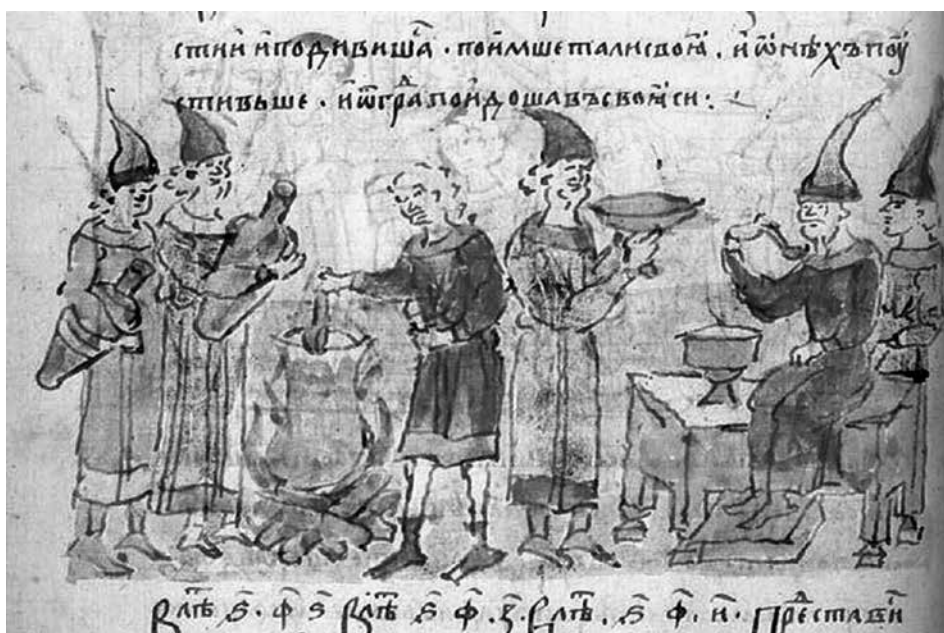 стии и подивишаⷭ҇ . поимше тали своꙗ , и ѡнѣхъ поу
стивъше . и ѿ граⷣ поидоша въ своꙗси :
В лѣⷮ ѕ҃ . ф҃ ѕ҃ В лѣⷮ ѕ҃ ф҃ . з҃ . В лѣⷮ . ѕ҃ ф҃ . и҃ . Преⷣстави